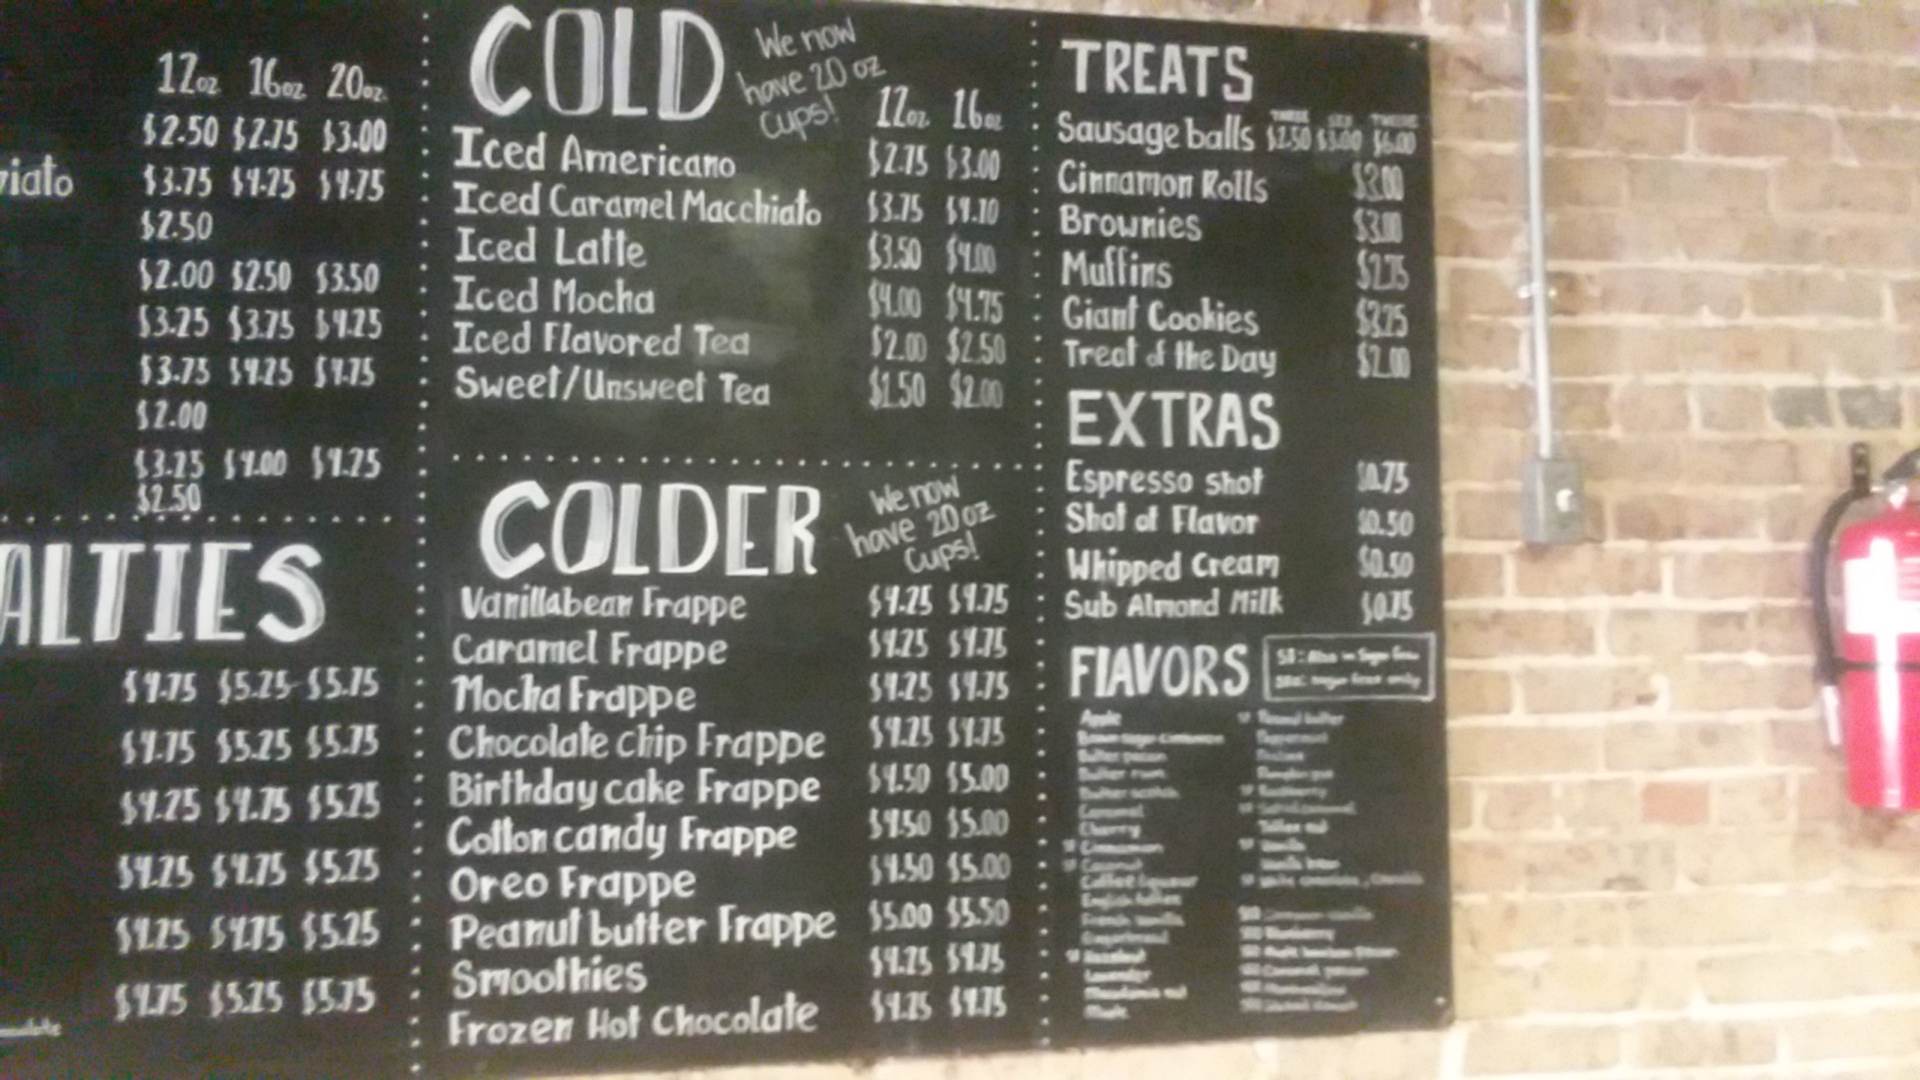 12oz 16oz 20oz
$2.50 $2.75 $3.00
iato $3.75 $4.25 $4.75
$2.50
$2.00 $2.50 $3.50
$3.25 $3.75 $4.25
$3.75 $4.25 $4.75
$2.00
$3.25 $4.00 $4.25
$2.50
ALTIES
$4.75 $5.25 $5.75
$4.75 $5.25 $5.75
$4.25 $4.75 $5.25
$4.25 $4.75 $5.25
$4.25 $4.75 $5.25
$4.75 $5.25 $5.75
COLD
We now
have 20 oz
cups!
12oz 16oz
Iced Americano $2.75 $3.00
Iced Caramel Macchiato $3.75 $4.10
Iced Latte $3.50 $4.00
Iced Mocha $4.00 $4.75
Iced Flavored Tea $2.00 $2.50
Sweet/Unsweet Tea $1.50 $2.00
COLDER
We now
have 20 oz
Cups!
Vanillabean Frappe $4.25 $4.75
Caramel Frappe $4.25 $4.75
Mocha Frappe $4.25 $4.75
Chocolate chip Frappe $4.25 $4.75
Birthday cake Frappe $4.50 $5.00
Cotton candy Frappe $4.50 $5.00
Oreo Frappe $4.50 $5.00
Peanut butter Frappe $5.00 $5.50
Smoothies $4.25 $4.75
Frozen Hot Chocolate $4.25 $4.75
TREATS
Sausage balls $1.50 $3.00 $6.00
Cinnamon Rolls
Brownies $3.00
Muffins $2.75
Giant Cookies
Treat of the Day $2.00
EXTRAS
Espresso shot $0.75
Shot of Flavor $0.50
Whipped Cream $0.50
Sub Almond Milk $0.75
FLAVORS
Apple
Butter pecan
Butter rum
Caramel
Cherry
Cinnamon
Coconut
French vanilla
Hazelnut
Lavender
Macadamia nut
Peanut butter
Raspberry
Salted caramel
Vanilla
Vanilla bean